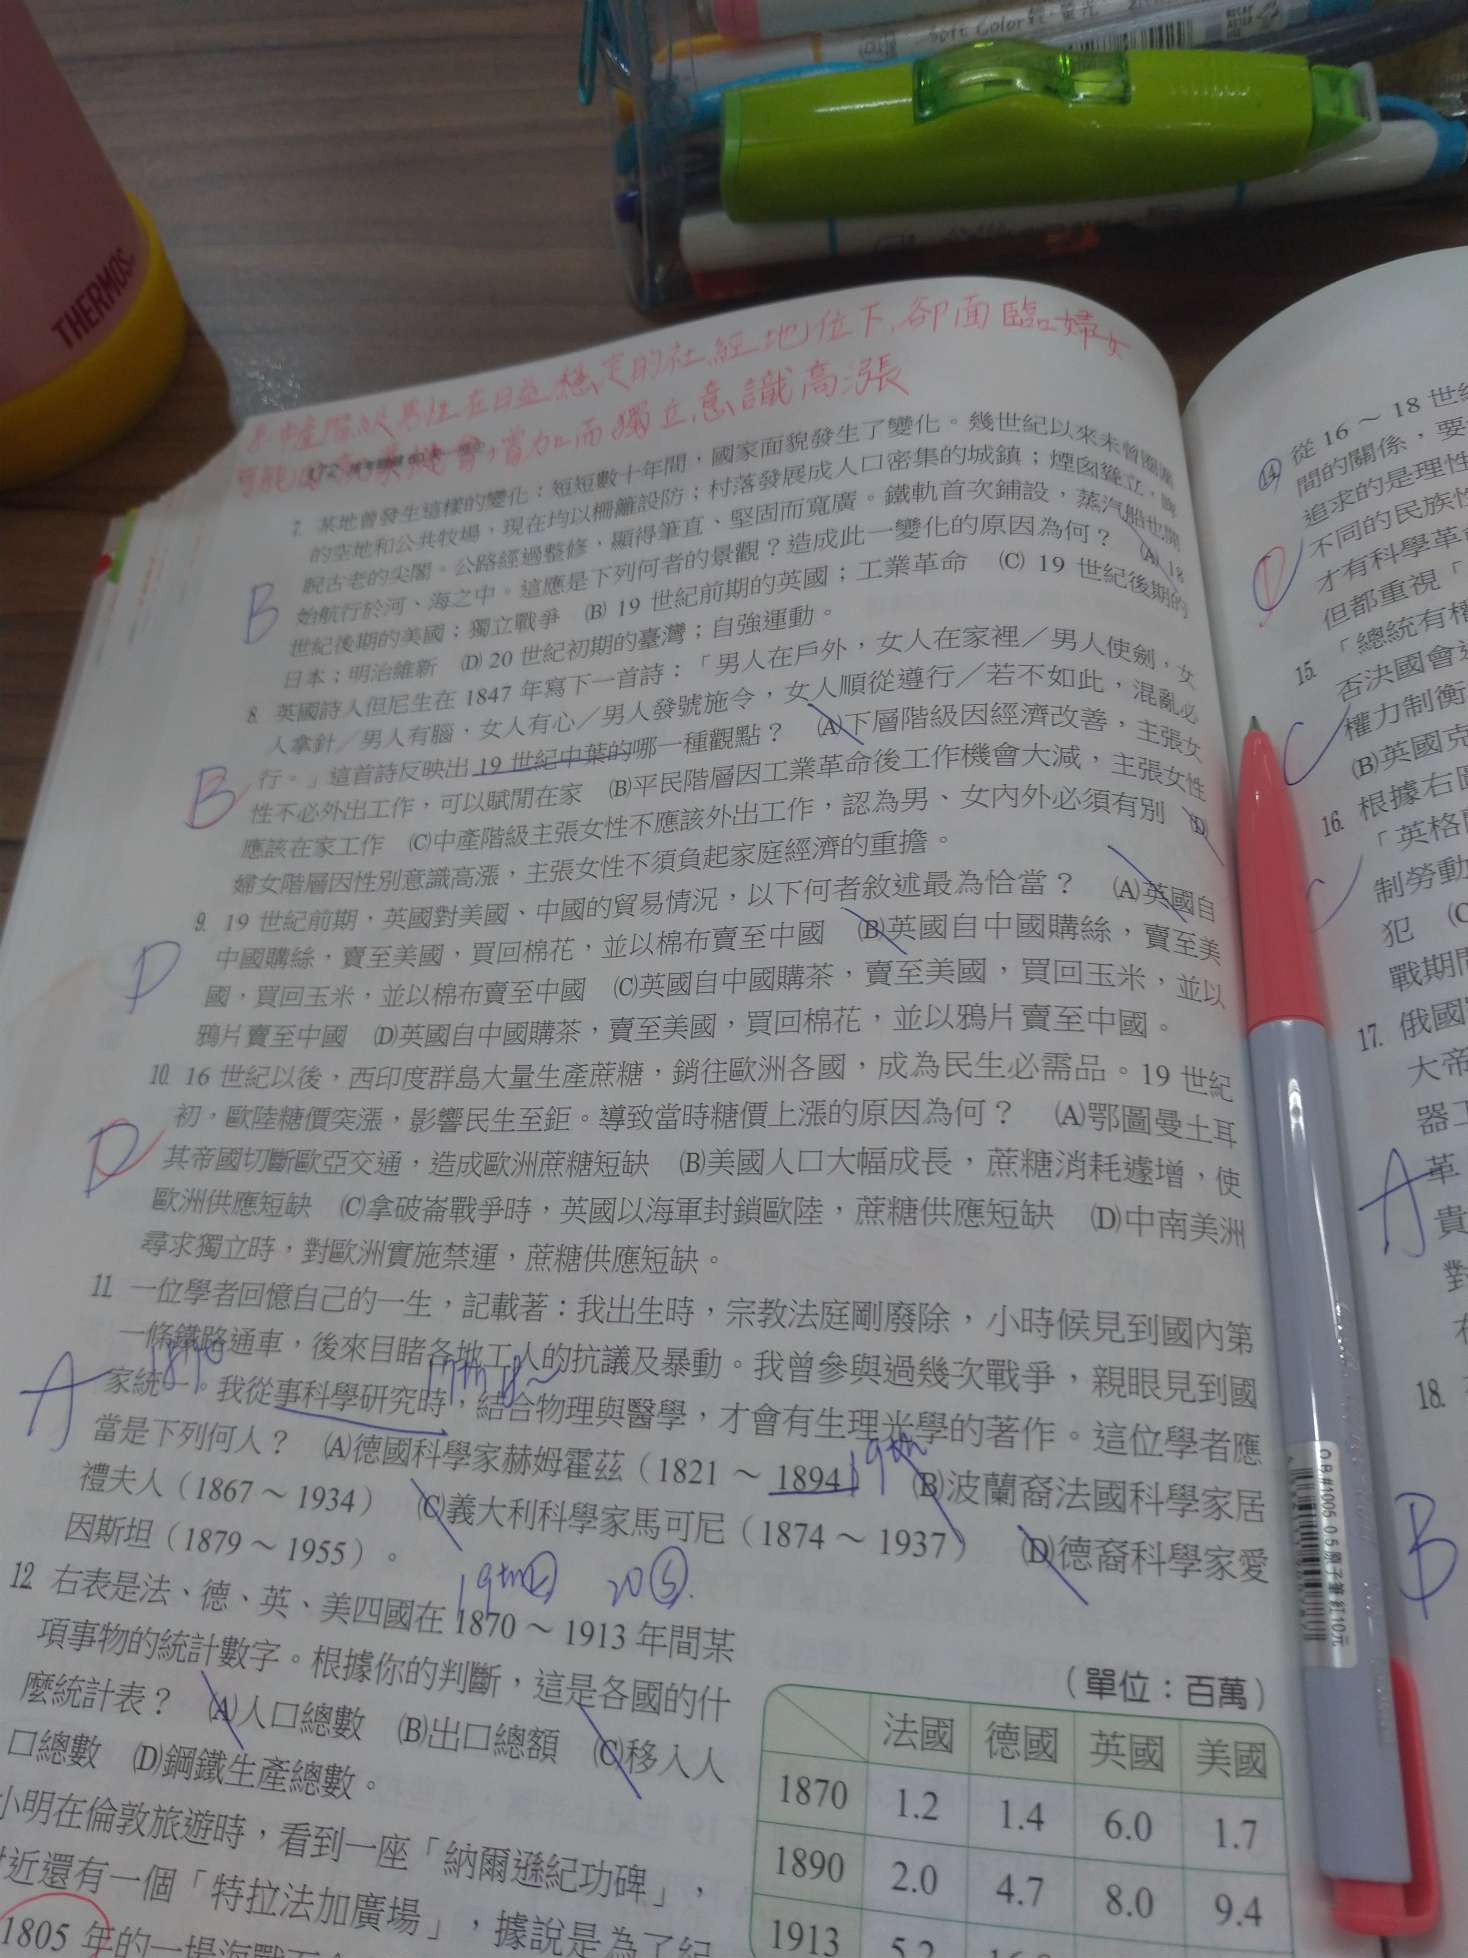 Soft Color
THERMOS
8.中產階級男性在日益穩定的社經地位下,卻面臨婦女
可能因就業機會增加而獨立意識高漲
7. 某地曾發生這樣的變化：短短數十年間，國家面貌發生了變化。幾世紀以來未曾圈圍
的空地和公共牧場，現在均以柵籬設防；村落發展成人口密集的城鎮；煙囪聳立，睥
睨古老的尖閣。公路經過整修，顯得筆直、堅固而寬廣。鐵軌首次鋪設，蒸汽船也開
始航行於河、海之中。這應是下列何者的景觀？造成此一變化的原因為何？ (A) 18
世紀後期的美國；獨立戰爭 (B) 19 世紀前期的英國；工業革命 (C) 19 世紀後期的
日本；明治維新 (D) 20 世紀初期的臺灣；自強運動。
B
8. 英國詩人但尼生在 1847 年寫下一首詩：「男人在戶外，女人在家裡／男人使劍，女
人拿針／男人有腦，女人有心／男人發號施令，女人順從遵行／若不如此，混亂必
行。」這首詩反映出 19 世紀中葉的哪一種觀點？ (A)下層階級因經濟改善，主張女
性不必外出工作，可以賦閒在家 (B)平民階層因工業革命後工作機會大減，主張女性
應該在家工作 (C)中產階級主張女性不應該外出工作，認為男、女內外必須有別 (D)
婦女階層因性別意識高漲，主張女性不須負起家庭經濟的重擔。
B
9. 19 世紀前期，英國對美國、中國的貿易情況，以下何者敘述最為恰當？ (A)英國自
中國購絲，賣至美國，買回棉花，並以棉布賣至中國 (B)英國自中國購絲，賣至美
國，買回玉米，並以棉布賣至中國 (C)英國自中國購茶，賣至美國，買回玉米，並以
鴉片賣至中國 (D)英國自中國購茶，賣至美國，買回棉花，並以鴉片賣至中國。
D
10. 16 世紀以後，西印度群島大量生產蔗糖，銷往歐洲各國，成為民生必需品。19 世紀
初，歐陸糖價突漲，影響民生至鉅。導致當時糖價上漲的原因為何？ (A)鄂圖曼土耳
其帝國切斷歐亞交通，造成歐洲蔗糖短缺 (B)美國人口大幅成長，蔗糖消耗遽增，使
歐洲供應短缺 (C)拿破崙戰爭時，英國以海軍封鎖歐陸，蔗糖供應短缺 (D)中南美洲
尋求獨立時，對歐洲實施禁運，蔗糖供應短缺。
D
11. 一位學者回憶自己的一生，記載著：我出生時，宗教法庭剛廢除，小時候見到國內第
一條鐵路通車，後來目睹各地工人的抗議及暴動。我曾參與過幾次戰爭，親眼見到國
1870
家統一。我從事科學研究時，結合物理與醫學，才會有生理光學的著作。這位學者應
當是下列何人？ (A)德國科學家赫姆霍茲（1821 ～ 1894） (B)波蘭裔法國科學家居
19th
禮夫人（1867 ～ 1934） (C)義大利科學家馬可尼（1874 ～ 1937） (D)德裔科學家愛
因斯坦（1879 ～ 1955）。
A
12. 右表是法、德、英、美四國在 1870 ～ 1913 年間某
項事物的統計數字。根據你的判斷，這是各國的什
麼統計表？ (A)人口總數 (B)出口總額 (C)移入人
口總數 (D)鋼鐵生產總數。
（單位：百萬）
法國 德國 英國 美國
1870 1.2 1.4 6.0 1.7
1890 2.0 4.7 8.0 9.4
1913 5.2
小明在倫敦旅遊時，看到一座「納爾遜紀功碑」，
附近還有一個「特拉法加廣場」，據說是為了紀
1805 年的一場海戰
14.
從 16 ～ 18 世紀
間的關係，要
追求的是理性
不同的民族性
才有科學革命
但都重視「
D
15. 「總統有權
否決國會
權力制衡
(B)英國克
C
16. 根據右圖
「英格
制勞動
犯 (C
戰期間
C
17. 俄國
大帝
器工
革
貴
對
A
18.
B
0.5原子筆 紅10元